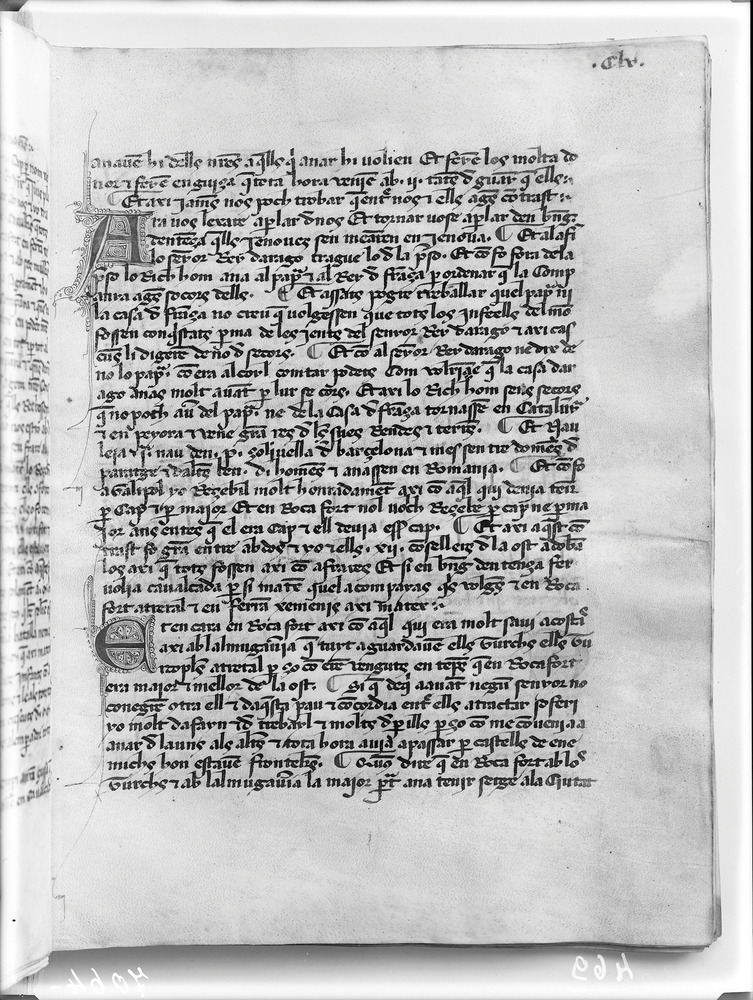 .Clv.
anauē hi dells nr̄es aq̄lls q̄ anar hi uolien Et ferē los molta do
nor ⁊ ferē en guiza q̄ tota hora uenīe ab .ij. tātē d guar q̄ ells
Et axi iames nos poch trobar q̄ entr̄ nos ⁊ ells ages cōtrast
Ara uos lexare aꝑlar dnos Et tornar uose aꝑlar den bn̄g
dentēza q̄lls Jenoues sen menarē en Jenoua. ¶ Et ala fi
lo seyor Rey darago trague lo d la p̄so. Et cō fo fora dela
p̄so lo Rich hom ana al papᷓ ⁊ al Rey d frāza ꝑ ordenar q̄ la Comp
anya ages socors dells. ¶ Et assats pogre treballar quel papᷓ ni
la casa d frāza no creu q̄ uolgessen que tots los Infeells del mō
fossen conq̄stats ꝑ ma de les jents del senyor Rey darago ⁊ axi cas
cūs li digerē de no d secors. ¶ Et cō al seyor Rey darago ne dix de
no lo papᷓ. cō era al corl comtar podets com uolriē q̄ la casa dar
ago anas molt auāt ꝑ lur secors. Et axi lo Rich hom sens secors
q̄ no poch auer del papᷓ. ne de la Casa d frāza tornassē en Catalūyᷓ
⁊ en peyora ⁊ uene grā res d les sues Rendes ⁊ terres. ¶ Et Nau
leja .j. nau den .p. soliuella d barçelona ⁊ mes sen tro domēs d
paratge ⁊ daltē ben .d. homēs ⁊ anassen en Romania. ¶ Et cō fo
a Galipol yo Reçebil molt honradamēt axi cō aq̄l qui deuia tenir
ꝑ Cap ⁊ ꝑ maior Et en Roca fort nol uolch Reçebre ꝑ cap ne ꝑ ma
jor ans entes q̄ el era Cap ⁊ ell deuia esser cap. ¶ Et axi aq̄st cō
trast fo grā entre abdos ⁊ yo ⁊ ells .xij. cōsellers d la ost adoba
los axi q̄ tots fossen axi cō a frares Et si en bn̄g dentenza fer
uolia caualcada ꝑ si matex quel acomparas q̄s uolges ⁊ en Roca
fort atretal ⁊ en feran xemenis axi matex
Et encara en Roca fort axi cō aq̄l qui era molt saui acostᷓ
axi ab lalmugauia q̄ tuyt aguardauē ells Turchs ells Tu
rcoples atretal ꝑ ço cō erē uenguts en tēps q̄ en Rocafort
era maior ⁊ mellor de la ost. ¶ Si q̄ deq̄ auant negū senyor no
conegrē otra ell ⁊ daq̄sta pau ⁊ cōcordia entr̄ ells a tractar soferi
yo molt dafayn ⁊ d trebayl ⁊ molts d ꝑills ꝑ ço cō me cōuenia a
anar d la uns als alts ⁊ tota hora auia a passar ꝑ castells de ene
michs hon estauē fronters. ¶ Qᷓ uo dire q̄ en Roca fort ab los
Turchs ⁊ ab lalmugauia la maior p̄t ana tenir setge a la Ciutat
469
7064-